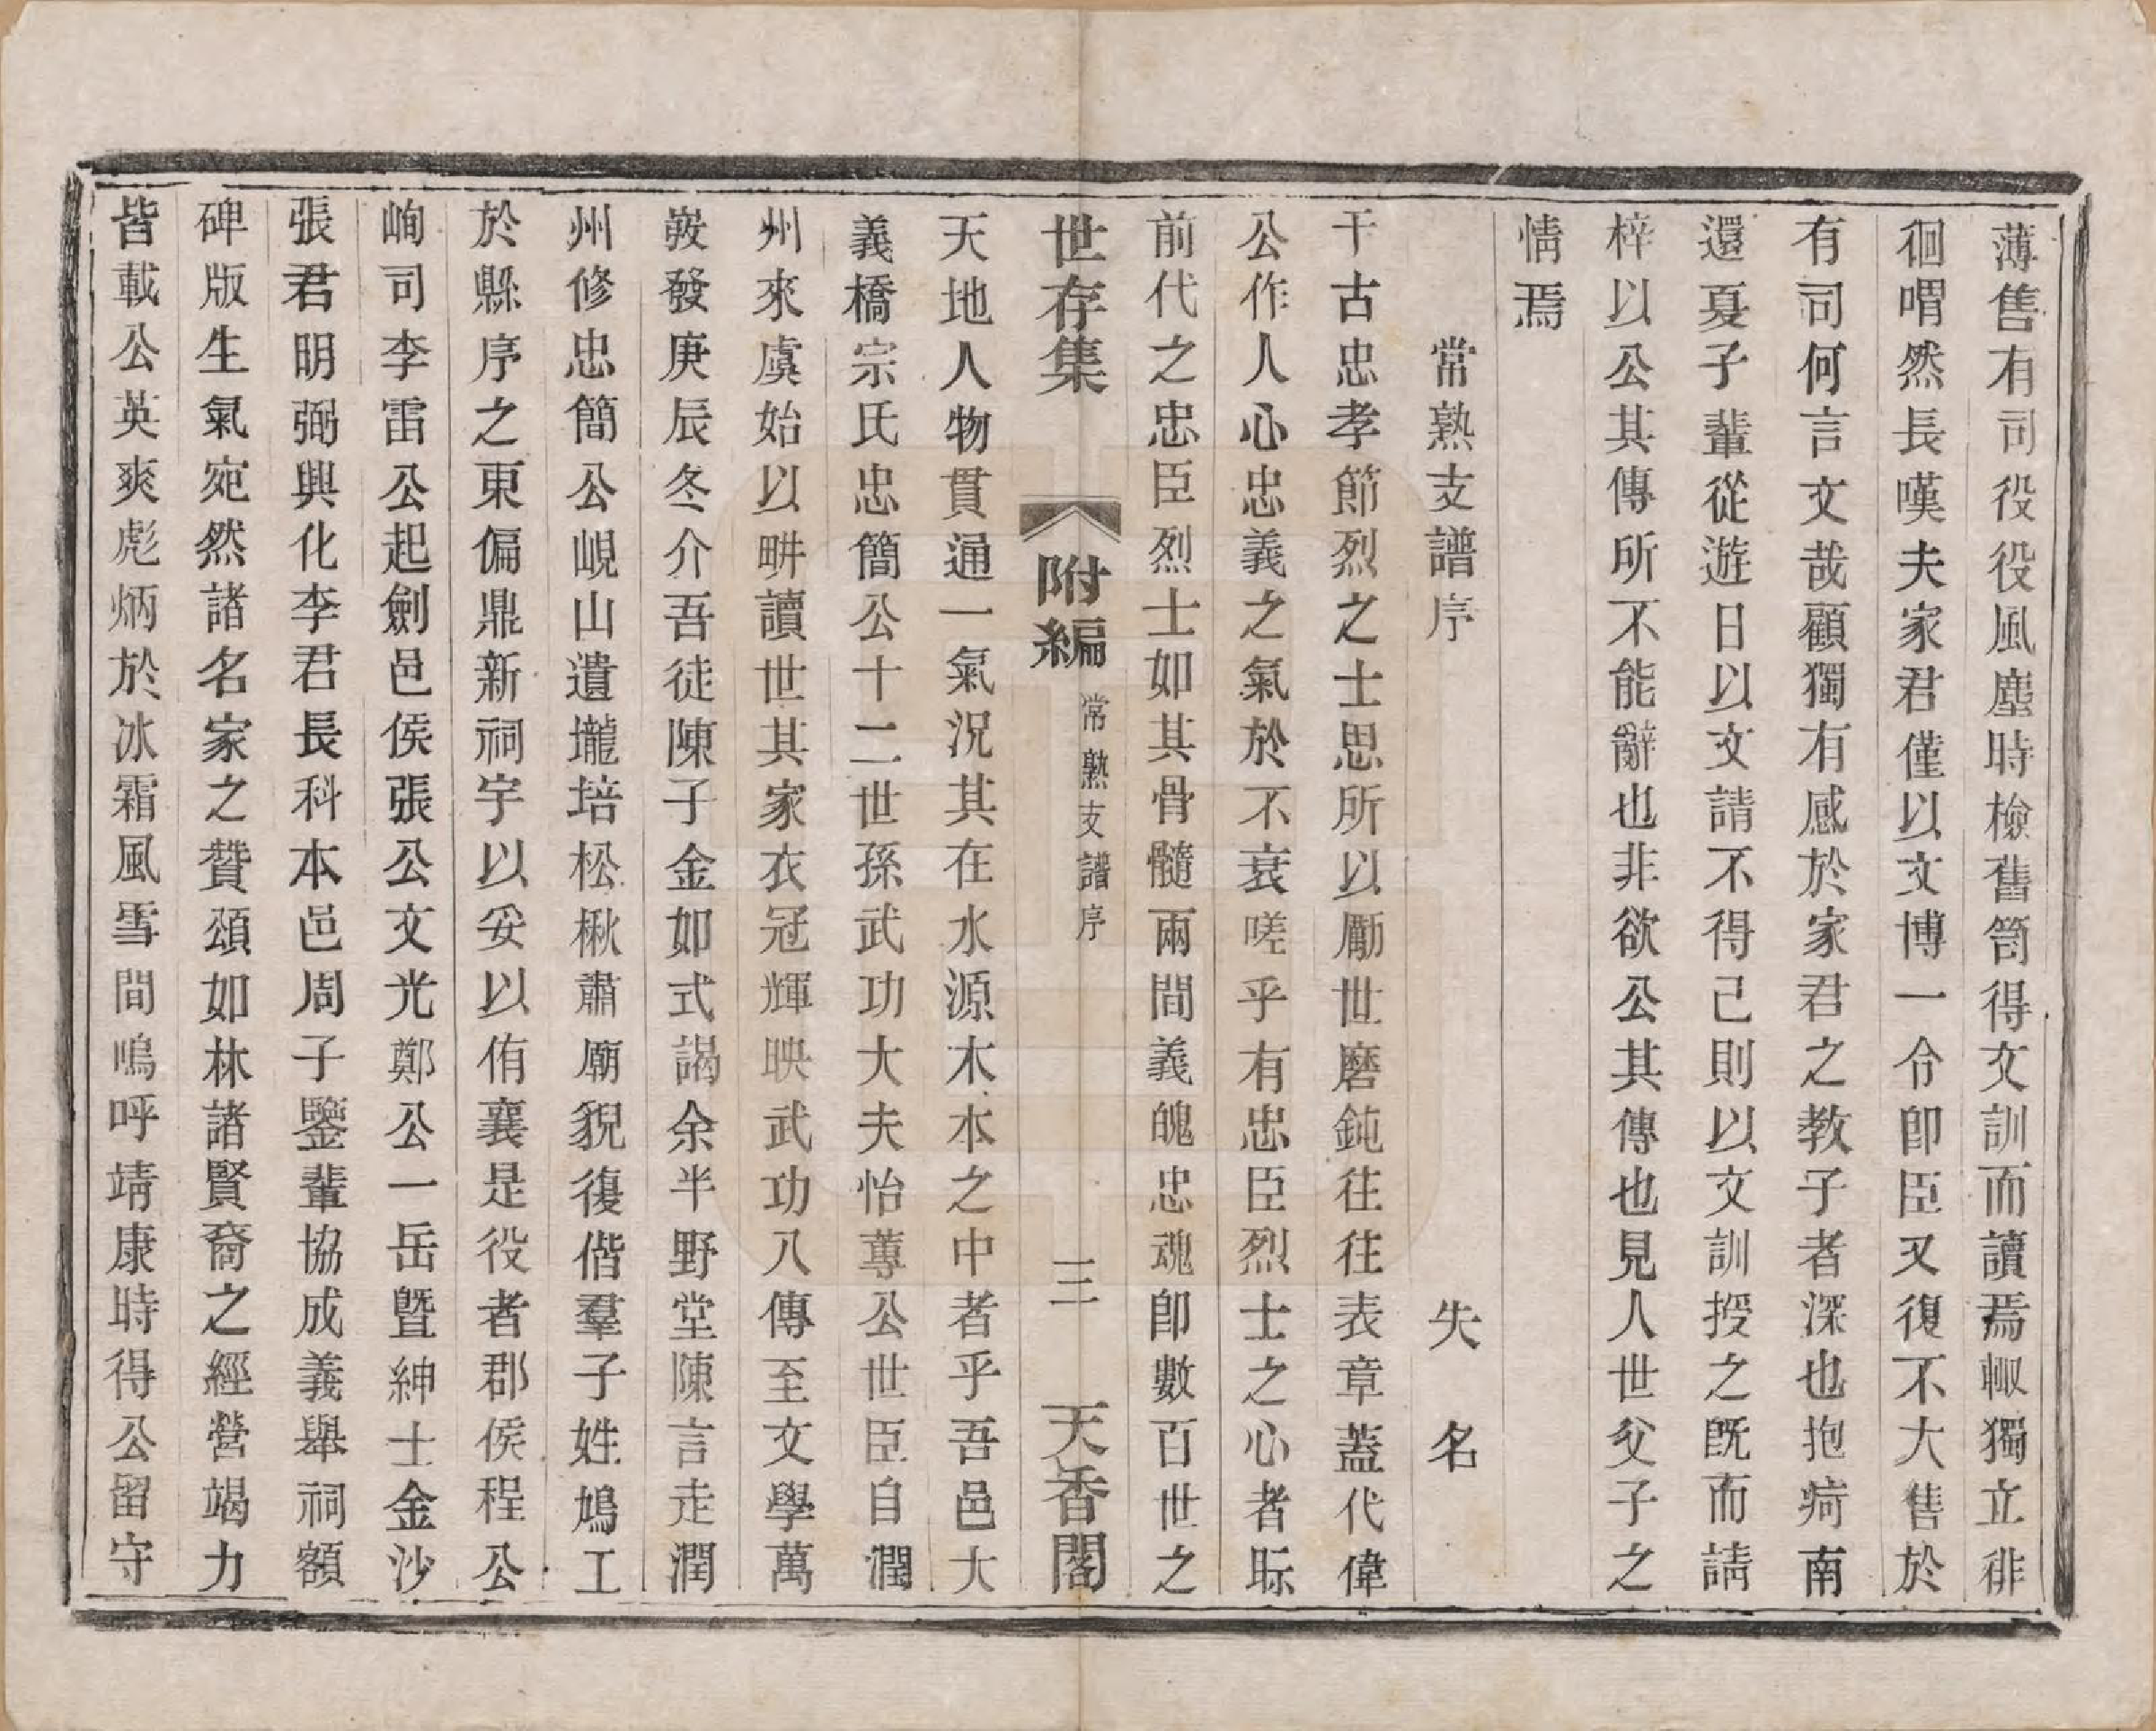 薄售有司役役風塵時檢舊笥得文訓而讀焉輙獨立徘
徊喟然長嘆夫家君僅以文博一令卽臣又復不大售於
有司何言文哉顧獨有感於家君之教子者深也抱疴南
還夏子輩從遊日以文請不得已則以文訓授之既而請
梓以公其傳所不能辭也非欲公其傳也見人世父子之
情焉
常熟支譜序 失名
千古忠孝節烈之士思所以勵世磨鈍往往表章蓋代偉
公作人心忠義之氣於不衰嗟乎有忠臣烈士之心者眎
前代之忠臣烈士如其骨髓兩間義魄忠魂卽數百世之
世存集 附編 常熟支譜序 三 天香閣
天地人物貫通一氣況其在水源木本之中者乎吾邑大
義橋宗氏忠簡公十二世孫武功大夫怡蓴公世臣自潤
州來虞始以畊讀世其家衣冠輝映武功八傳至文學萬
發庚辰冬介吾徒陳子金如式謁余半野堂陳言走潤
州修忠簡公峴山遺壠培松楸肅廟貌復偕羣子姓鳩工
於縣序之東偏鼎新祠宇以妥以侑襄是役者郡侯程公
峋司李雷公起劍邑侯張公文光鄭公一岳曁紳士金沙
張君明弼興化李君長科本邑周子鑒輩協成義舉祠額
碑版生氣宛然諸名家之贊頌如林諸賢裔之經營竭力
皆載公英爽彪炳於冰霜風雪間嗚呼靖康時得公留守